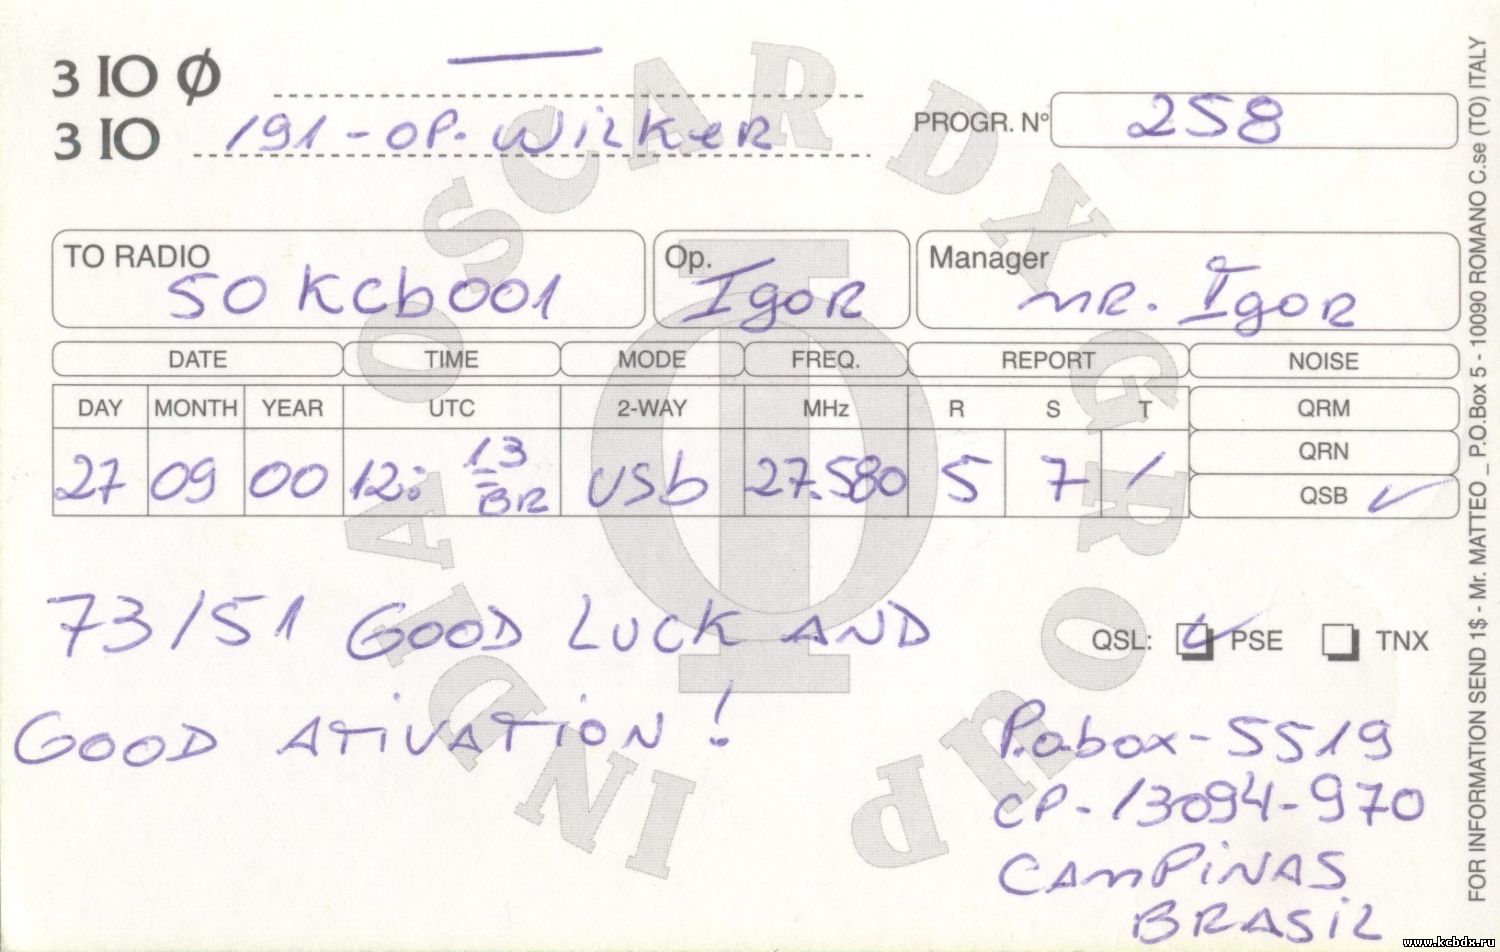 3 IO Ø
3 IO 191-OP. WILKER
PROGR. N° 258
INDIA OSCAR DX GROUP
TO RADIO 50 KCB001
Op. IGOR
Manager MR. IGOR
DATE TIME MODE FREQ. REPORT NOISE
DAY MONTH YEAR UTC 2-WAY MHz R S T QRM
27 09 00 12: 13 BR USB 27.580 5 7 / QRN
QSB ✓
73/51 GOOD LUCK AND
GOOD ATIVATION!
QSL: ✓ PSE TNX
P.O.BOX-5519
CP-13094-970
CAMPINAS
BRASIL
FOR INFORMATION SEND 1$ - Mr. MATTEO _ P.O.Box 5 - 10090 ROMANO C.se (TO) ITALY
www.kcbdx.ru